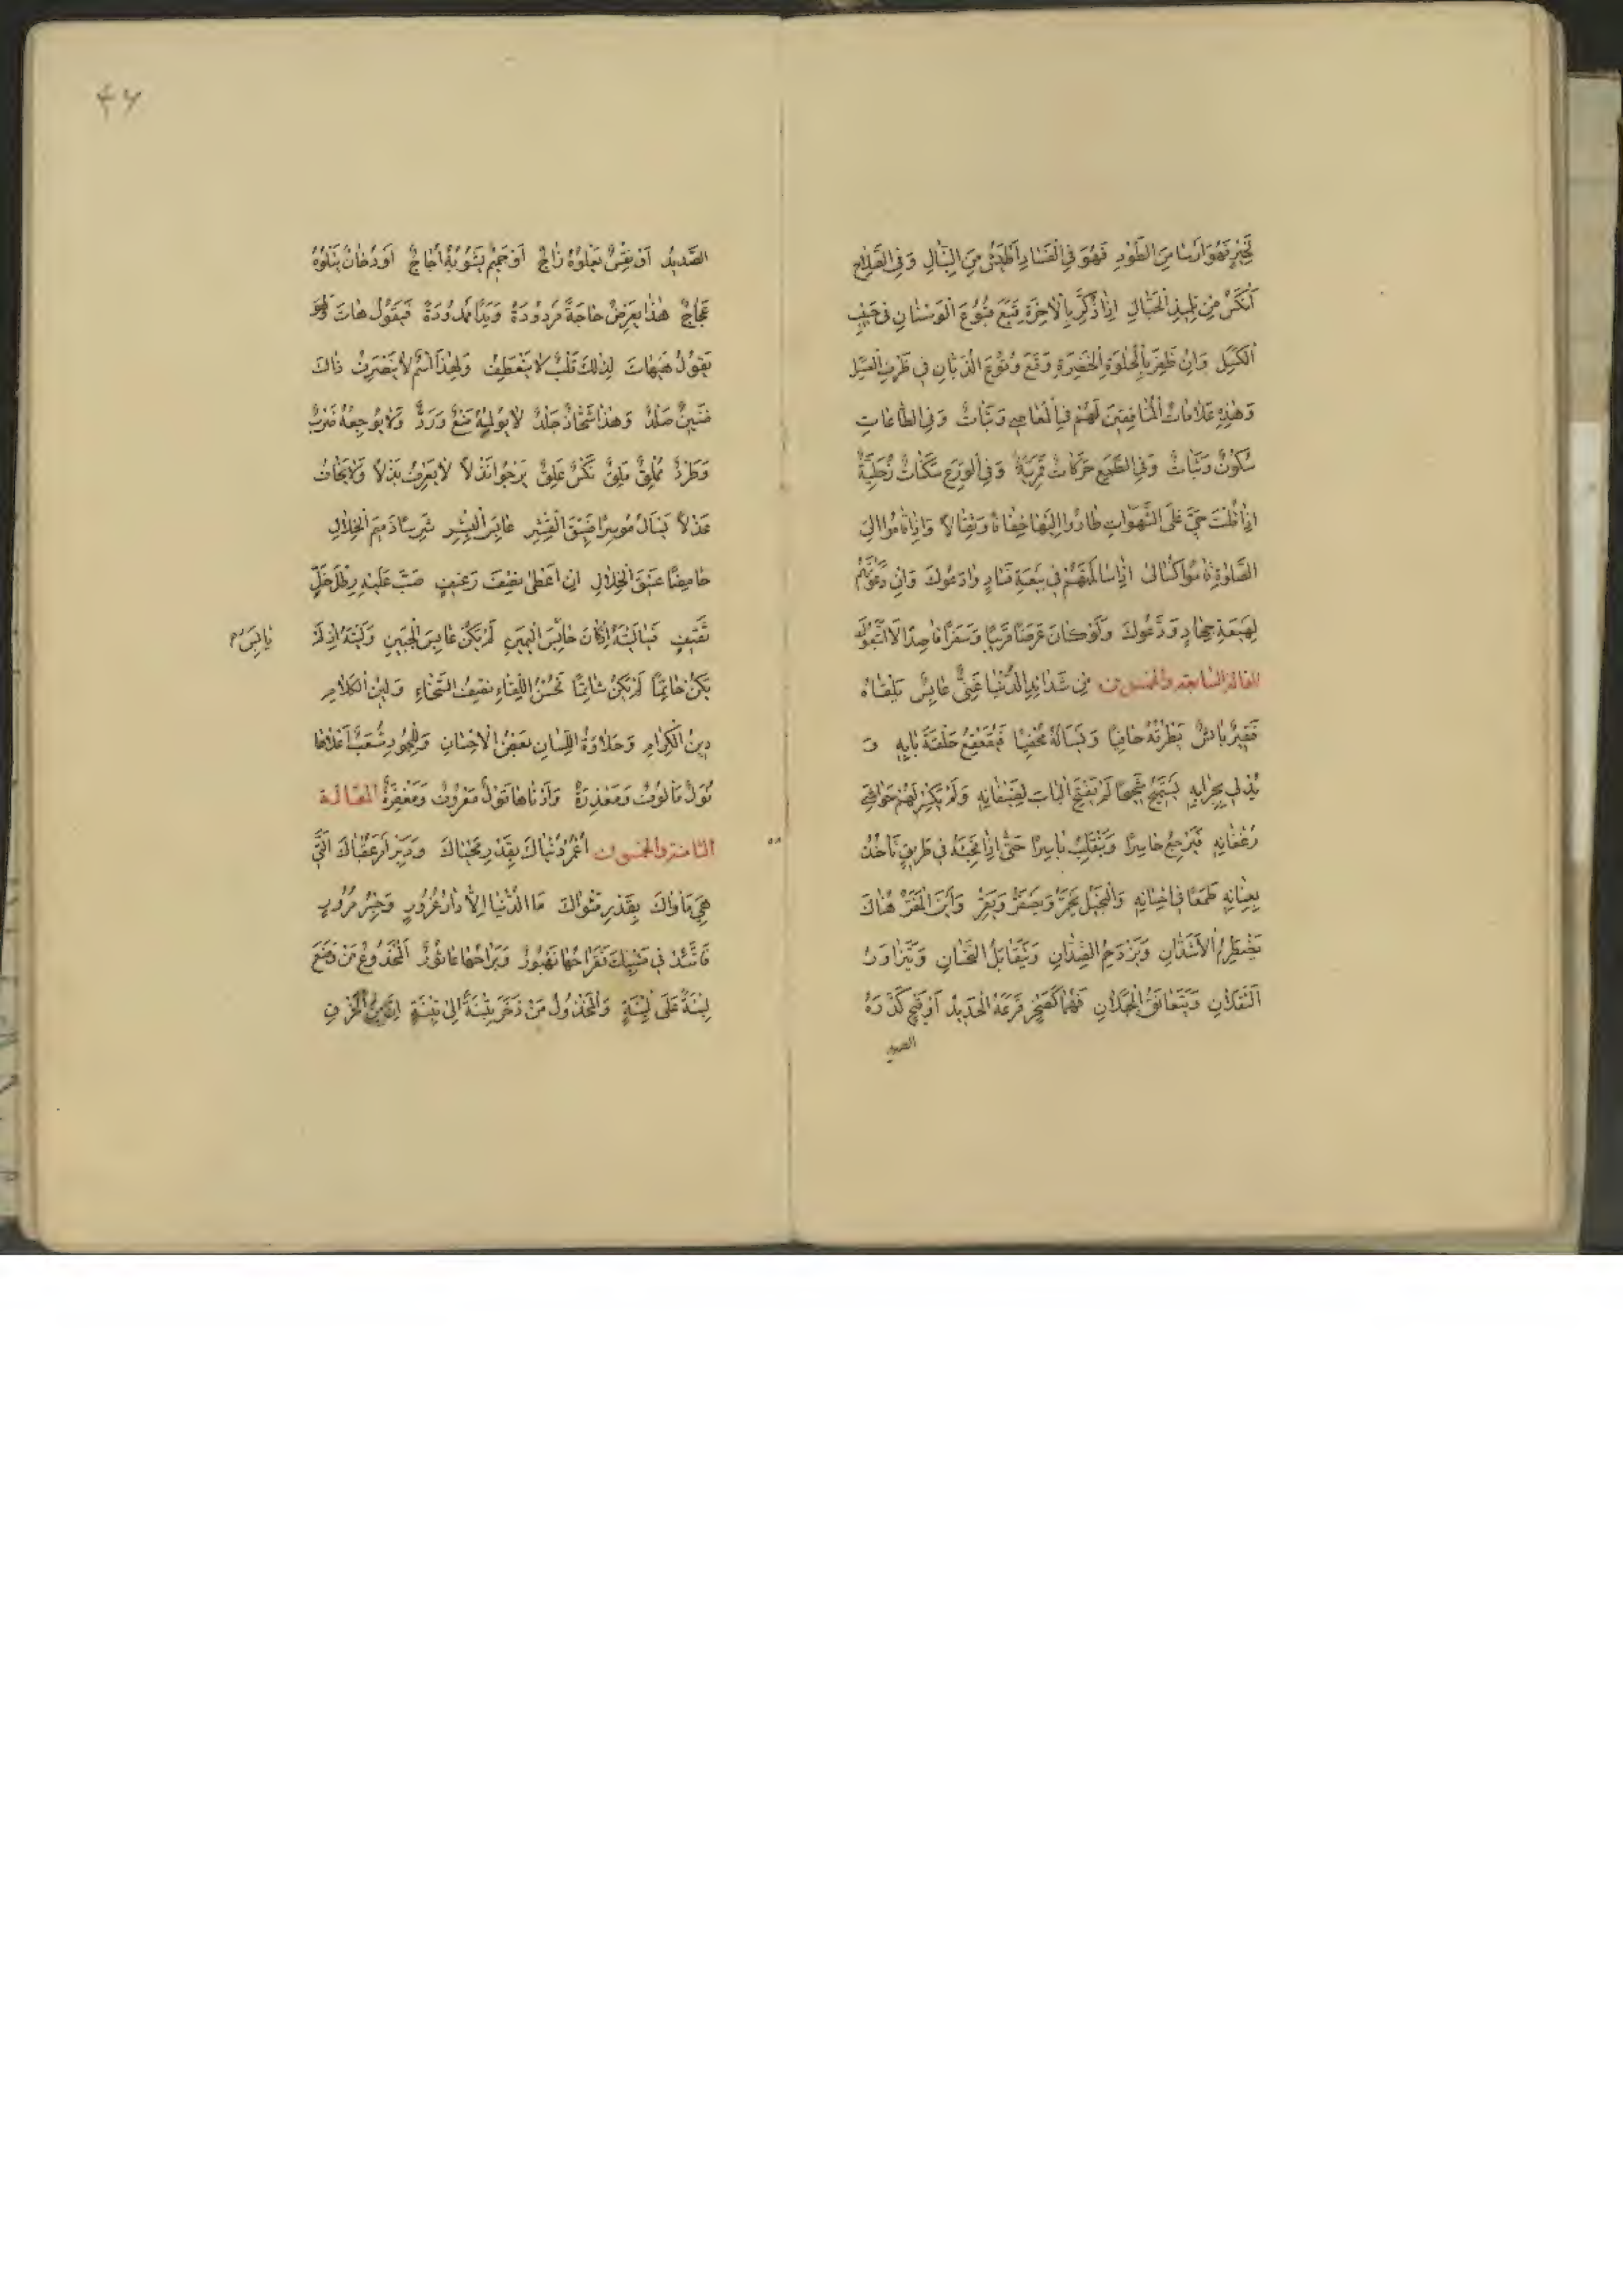 لخير فهو ارسا من الطود فهو في الفساد اطيش من النبال وفي الصلاح
انكر من تلميذ الخيال اذا ذكر بالاخرة قبع قبوع الوسنان في جيب
الكسل وان ظفر بالحلوة الخضرة وقع وقوع الذبان في ظرف العسل
وهذه علامات المنافقين لهم في المعاصي وثبات وفي الطاعات
سكون وثبات وفي الطمع حركات قمرية وفي الورع سكنات زحلية
اذا قلت حي على الشهوات طاروا اليها خفافا وثقالا واذا قاموا الى
الصلوة قاموا كسالى اذا سالمتهم في بيعة فساد وادعوك وان دعوتهم
لهيعة جهاد ودعوك ولو كان عرضا قريبا وسفرا قاصدا لاتبعوك
المقالة السابعة والخمسون من شدائد الدنيا غني عابس يلقاه
فقير بائس يطرقه حافيا ويساله محفيا فيقعقع حلقة بابه و
يذلي بجرابه يستميح شحيحا لم يفتح الباب لضيفانه ولم يكسر لهم حوافي
رغفانه فيرجع خاسرا وينقلب باسرا حتى اذا لحقه في طريق ناخذ
بعنانه طمعا في احسانه والبخيل يحمر ويصفر ويفر واين المفر هناك
يصطرع الاسدان ويزدحم الضدان ويتقابل النحسان ويتزاور
النقدان ويتعانق الجلدان فهما كصخر قرعه الحديد او قيح كدره
الصديد
۴۶
الصديد او نقس يعلوه زاج او حميم يشوبه اجاج او دخان يتلوه
عجاج هذا يعرض حاجة مردودة ويدا ممدودة فيقول هات وهو
يقول هيهات لذلك قلب لا ينعطف ولهذا اسم لا ينصرف ذاك
ضنين صلد وهذا شحاذ جلد لا يؤلمه منع ورد ولا يوجعه ضرب
وطرد مملق ملق نكس علق يرجو نذلا لا يعرف بذلا ولا يخاف
عذلا يسال موسرا ضيق الفشر عابس البشر شرسا دميم الخلال
حامضا عتيق الخلال ان اعطى نصف رغيف صب عليه رطل خل
ثقيف فياليته اذ كان حابس اليمين لم يكن عابس الجبين وليته اذ لم
يابس
يكن حاتما لم يكن شاتما فحسن اللقاء نصف السخاء ولين الكلام
دين الكرام وحلاوة اللسان بعض الاحسان وللجود شعب اعلاها
نول مالوف ومعذرة وادناها قول معروف ومغفرة المقالة
الثامنة والخمسون اعمر دنياك بقدر محياك ودبر امر عقباك التي
هي ماواك بقدر مثواك ما الدنيا الا دار غرور وجسر مرور
فاتئد في مشيك فقراحها تهبور وبراحها عاثور المخدوع من وضع
لبنة على لبنة والمخذول من ذخر تبنة الى تبنة ان من الخرق